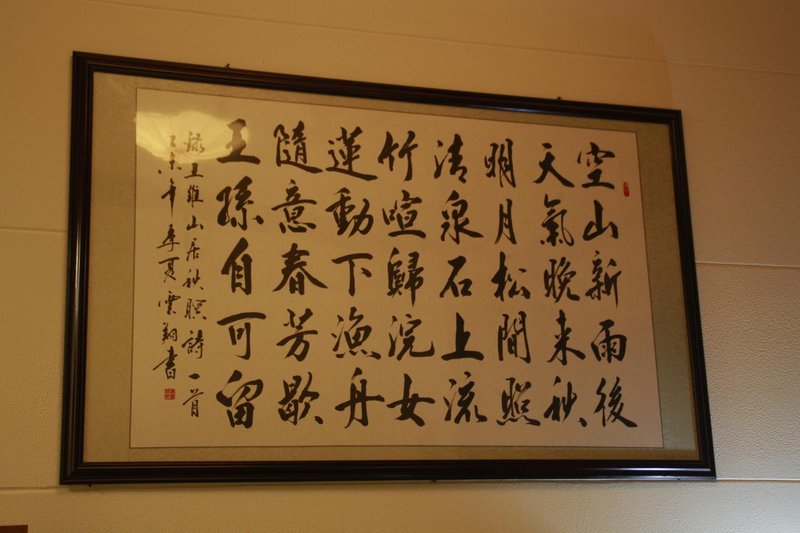 空山新雨後
天氣晚来秋
明月松間照
清泉石上流
竹喧歸浣女
蓮動下漁舟
隨意春芳歇
王孫自可留
録王維山居秋暝詩一首
乙未年季夏雲翔書